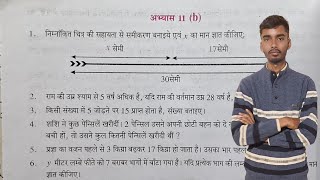 अभ्यास 11 (b)
1. निम्नांकित चित्र की सहायता से समीकरण बनाइये एवं x का मान ज्ञात कीजिए,
x सेमी 17सेमी
30सेमी
2. राम की उम्र श्याम से 5 वर्ष अधिक है, यदि राम की वर्तमान उम्र 28 वर्ष है,
3. किसी संख्या में 5 जोड़ने पर 15 प्राप्त होता है, संख्या बताइए।
4. शशि ने कुछ पेन्सिलें खरीदीं। 2 पेन्सिल उसने अपनी छोटी बहन को दे
बची हों, तो उसने कुल कितनी पेन्सिलें खरीदी थी ?
5. प्रज्ञा का वजन पहले से 3 किग्रा बढ़कर 17 किग्रा हो जाता है। उसका भार पहले
6. y मीटर लम्बे फीते को 7 बराबर भागों में बाँटा गया है। यदि प्रत्येक भाग की लम्बा
ज्ञात कीजिए।